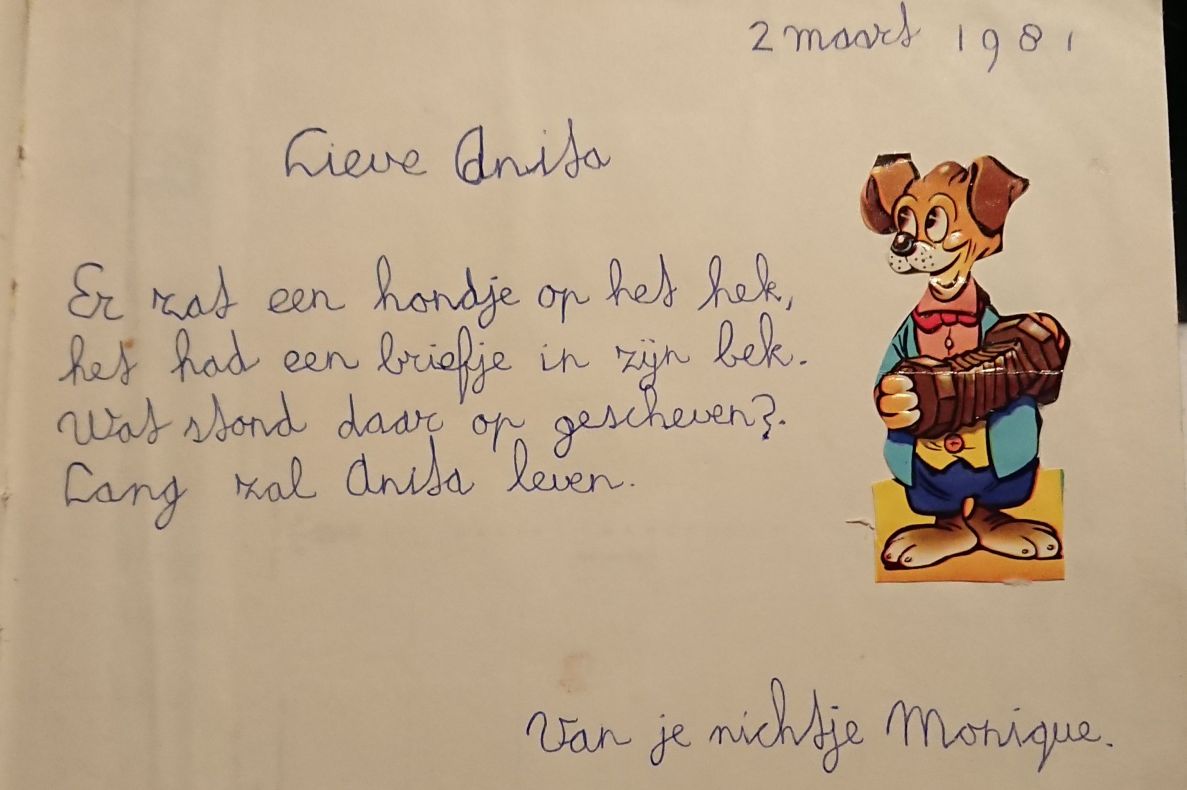 2 maart 1981
Lieve Anita
Er zat een hondje op het hek,
het had een briefje in zijn bek.
Wat stond daar op gescheven?.
Lang zal Anita leven.
Van je nichtje Monique.